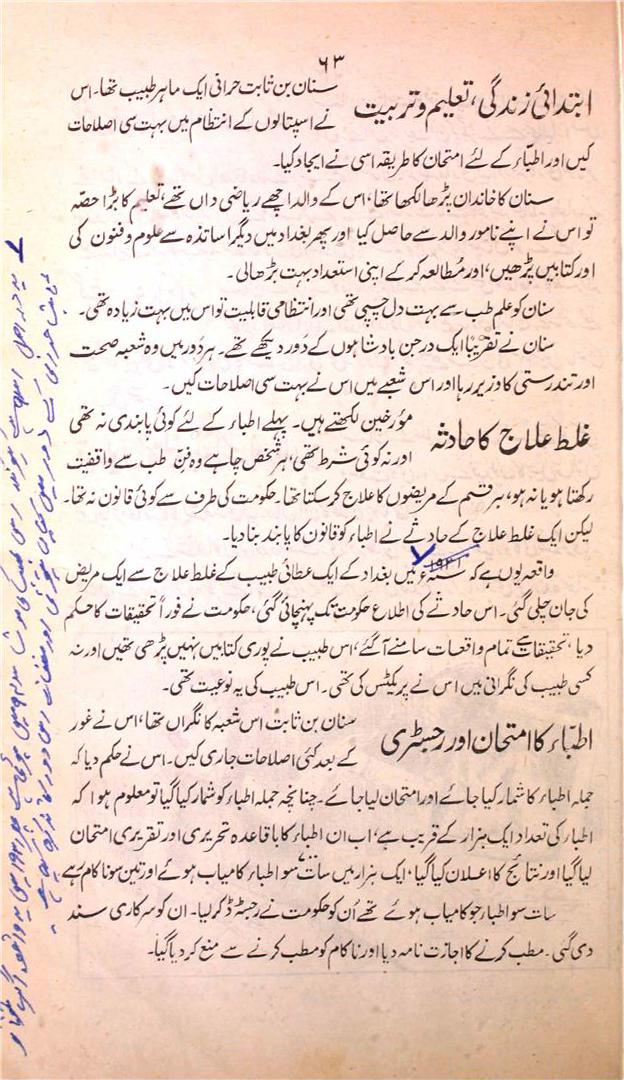 ۶۳
ابتدائی زندگی، تعلیم و تربیت
سنان بن ثابت حرانی ایک ماہر طبیب تھا۔ اس
نے اسپتالوں کے انتظام میں بہت سی اصلاحات
کیں اور اطبّاء کے لئے امتحان کا طریقہ اسی نے ایجاد کیا۔
سنان کا خاندان پڑھا لکھا تھا، اس کے والد اچھے ریاضی داں تھے، تعلیم کا بڑا حصّہ
تو اس نے اپنے نامور والد سے حاصل کیا اور پھر بغداد میں دیگر اساتذہ سے علوم و فنون کی
اور کتابیں پڑھیں، اور مُطالعہ کرکے اپنی استعداد بہت بڑھالی۔
سنان کو علم طب سے بہت دل چسپی تھی اور انتظامی قابلیت تو اس میں بہت زیادہ تھی۔
سنان نے تقریباً ایک درجن بادشاہوں کے دَور دیکھے تھے۔ ہر دَور میں وہ شعبہ صحت
اور تندرستی کا وزیر رہا اور اس شعبے میں اس نے بہت سی اصلاحات کیں۔
غلط علاج کا حادثہ
مؤرخین لکھتے ہیں۔ پہلے اطباء کے لئے کوئی پابندی نہ تھی
اور نہ کوئی شرط تھی، ہر شخص چاہے وہ فنِّ طب سے واقفیت
رکھتا ہو یا نہ ہو، ہر قسم کے مریضوں کا علاج کرسکتا تھا۔ حکومت کی طرف سے کوئی قانون نہ تھا۔
لیکن ایک غلط علاج کے حادثے نے اطباء کو قانون کا پابند بنا دیا۔
واقعہ یوں ہے کہ ۱۹۴۲ء میں بغداد کے ایک عطائی طبیب کے غلط علاج سے ایک مریض
کی جان چلی گئی۔ اس حادثے کی اطلاع حکومت تک پہنچائی گئی، حکومت نے فوراً تحقیقات کا حکم
دیا، تحقیقات سے تمام واقعات سامنے آگئے، اس طبیب نے پوری کتابیں نہیں پڑھی تھیں اور نہ
کسی طبیب کی نگرانی میں اس نے پریکٹس کی تھی۔ اس طبیب کی یہ نوعیت تھی۔
اطبّاء کا امتحان اور رجسٹری
سنان بن ثابت اس شعبہ کا نگراں تھا، اس نے غور
کے بعد کئی اصلاحات جاری کیں۔ اس نے حکم دیا کہ
جملہ اطباء کا شمار کیا جائے اور امتحان لیا جائے۔ چنانچہ جملہ اطباء کو شمار کیا گیا تو معلوم ہوا کہ
اطباء کی تعداد ایک ہزار کے قریب ہے، اب ان اطباء کا باقاعدہ تحریری اور تقریری امتحان
لیا گیا اور نتائج کا اعلان کیا گیا، ایک ہزار میں سات سو اطباء کامیاب ہوئے اور تین سو ناکام رہے
سات سو اطباء جو کامیاب ہوئے تھے اُن کو حکومت نے رجسٹرڈ کرلیا۔ ان کو سرکاری سند
دی گئی۔ مطب کرنے کا اجازت نامہ دیا اور ناکام کو مطب کرنے سے منع کردیا گیا۔